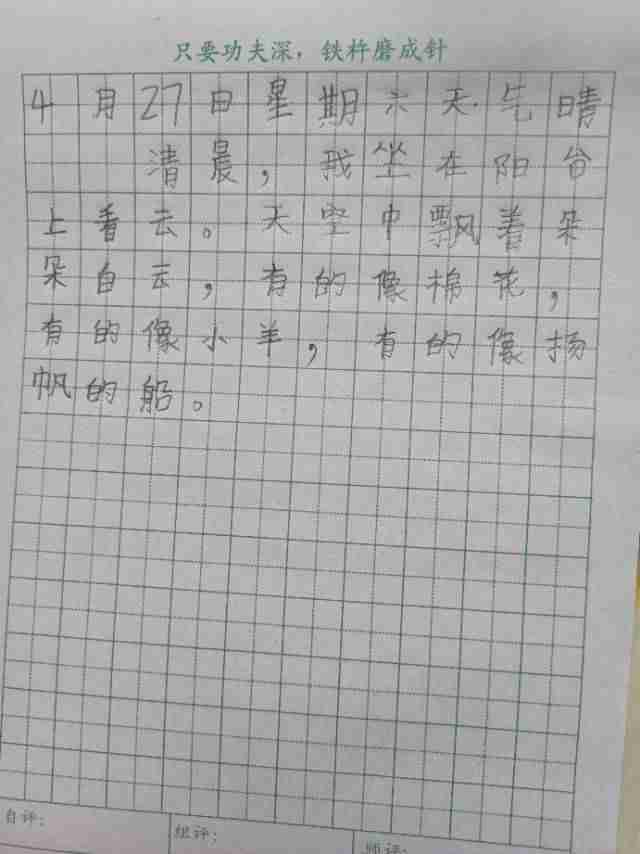 只要功夫深，铁杵磨成针
4月27日星期六天气晴
清晨，我坐在阳台
上看云。天空中飘着朵
朵白云，有的像棉花，
有的像小羊，有的像扬
帆的船。
自评： 组评： 师评：